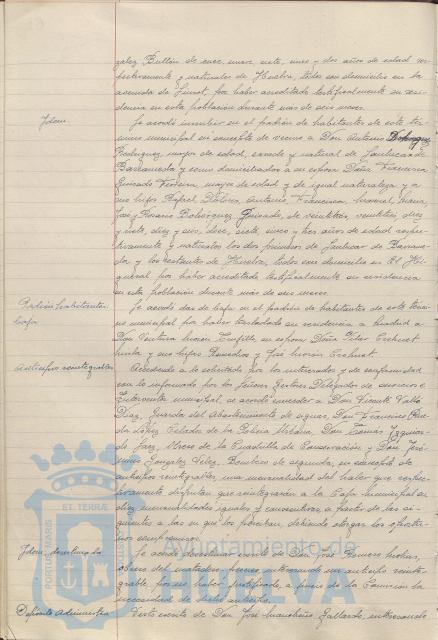 gález Bullón de once, nueve, siete, cinco y dos años de edad res-
pectivamente y naturales de Huelva, todos con domicilio en la
avenida de por haber acreditado testificalmente su resi-
dencia en esta población durante más de seis meses.
Idem.
Se acordó inscribir en el padrón de habitantes de este tér-
mino municipal en concepto de vecino a Don Antonio Bohorquez
Rodríguez, mayor de edad, casado y natural de Sanlucar de
Barrameda y como domiciliados a su esposa Doña Francisca
Guisado mayor de edad y de igual naturaleza y a
sus hijos Rafael, Dolores, Antonio, Francisca, Manuel, María,
José y Rosario Bohórquez Guisado, de veintitrés, veintiún, diez
y siete, diez y seis, doce, siete, cinco y tres años de edad respec-
tivamente y naturales los dos primeros de Sanlucar de Barrame-
da y los restantes de Huelva, todos con domicilio en El Hi-
gueral por haber acreditado testificalmente su residencia
en esta población durante más de seis meses.
Padrón habitantes
baja
Se acordó dar de baja en el padrón de habitantes de este térmi-
no municipal por haber trasladado su residencia a Madrid a
Don Ventura Morón su esposa Doña Pilar
y sus hijos Remedios y José Morón
Anticipo reintegrable
Accediendo a lo solicitado por los interesados y de conformidad
con lo informado por los señores Gestores Delegados de servicios e
Interventor municipal, se acordó conceder a Don Vicente Valle
Díaz, Guarda del Abastecimiento de aguas, Don Francisco
López Celador de la Policía Urbana, Don Tomás Izquier-
do Jara, Obrero de la Cuadrilla de Conservación y Don José
González Vélez, Bombero de segunda, en concepto de
anticipo reintegrable, una mensualidad del haber que respec-
tivamente disfrutan que reintegrarán a la Caja Municipal en
diez mensualidades iguales y consecutivas, a partir de las si-
guientes a las en que los perciban, debiendo otorgar los oportu-
nos compromisos.
Idem, desestimada
Se acordó desestimar escrito de Don José Romero
obrero del matadero interesando un anticipo reinte-
grable por no haber justificado, a juicio de la Comisión la
necesidad de dicho anticipo.
Visto escrito de Don José Gallardo, interesando
PORTUS MARIS
ET TERRÆ
CUSTODIA
Ayuntamiento de
HUELVA